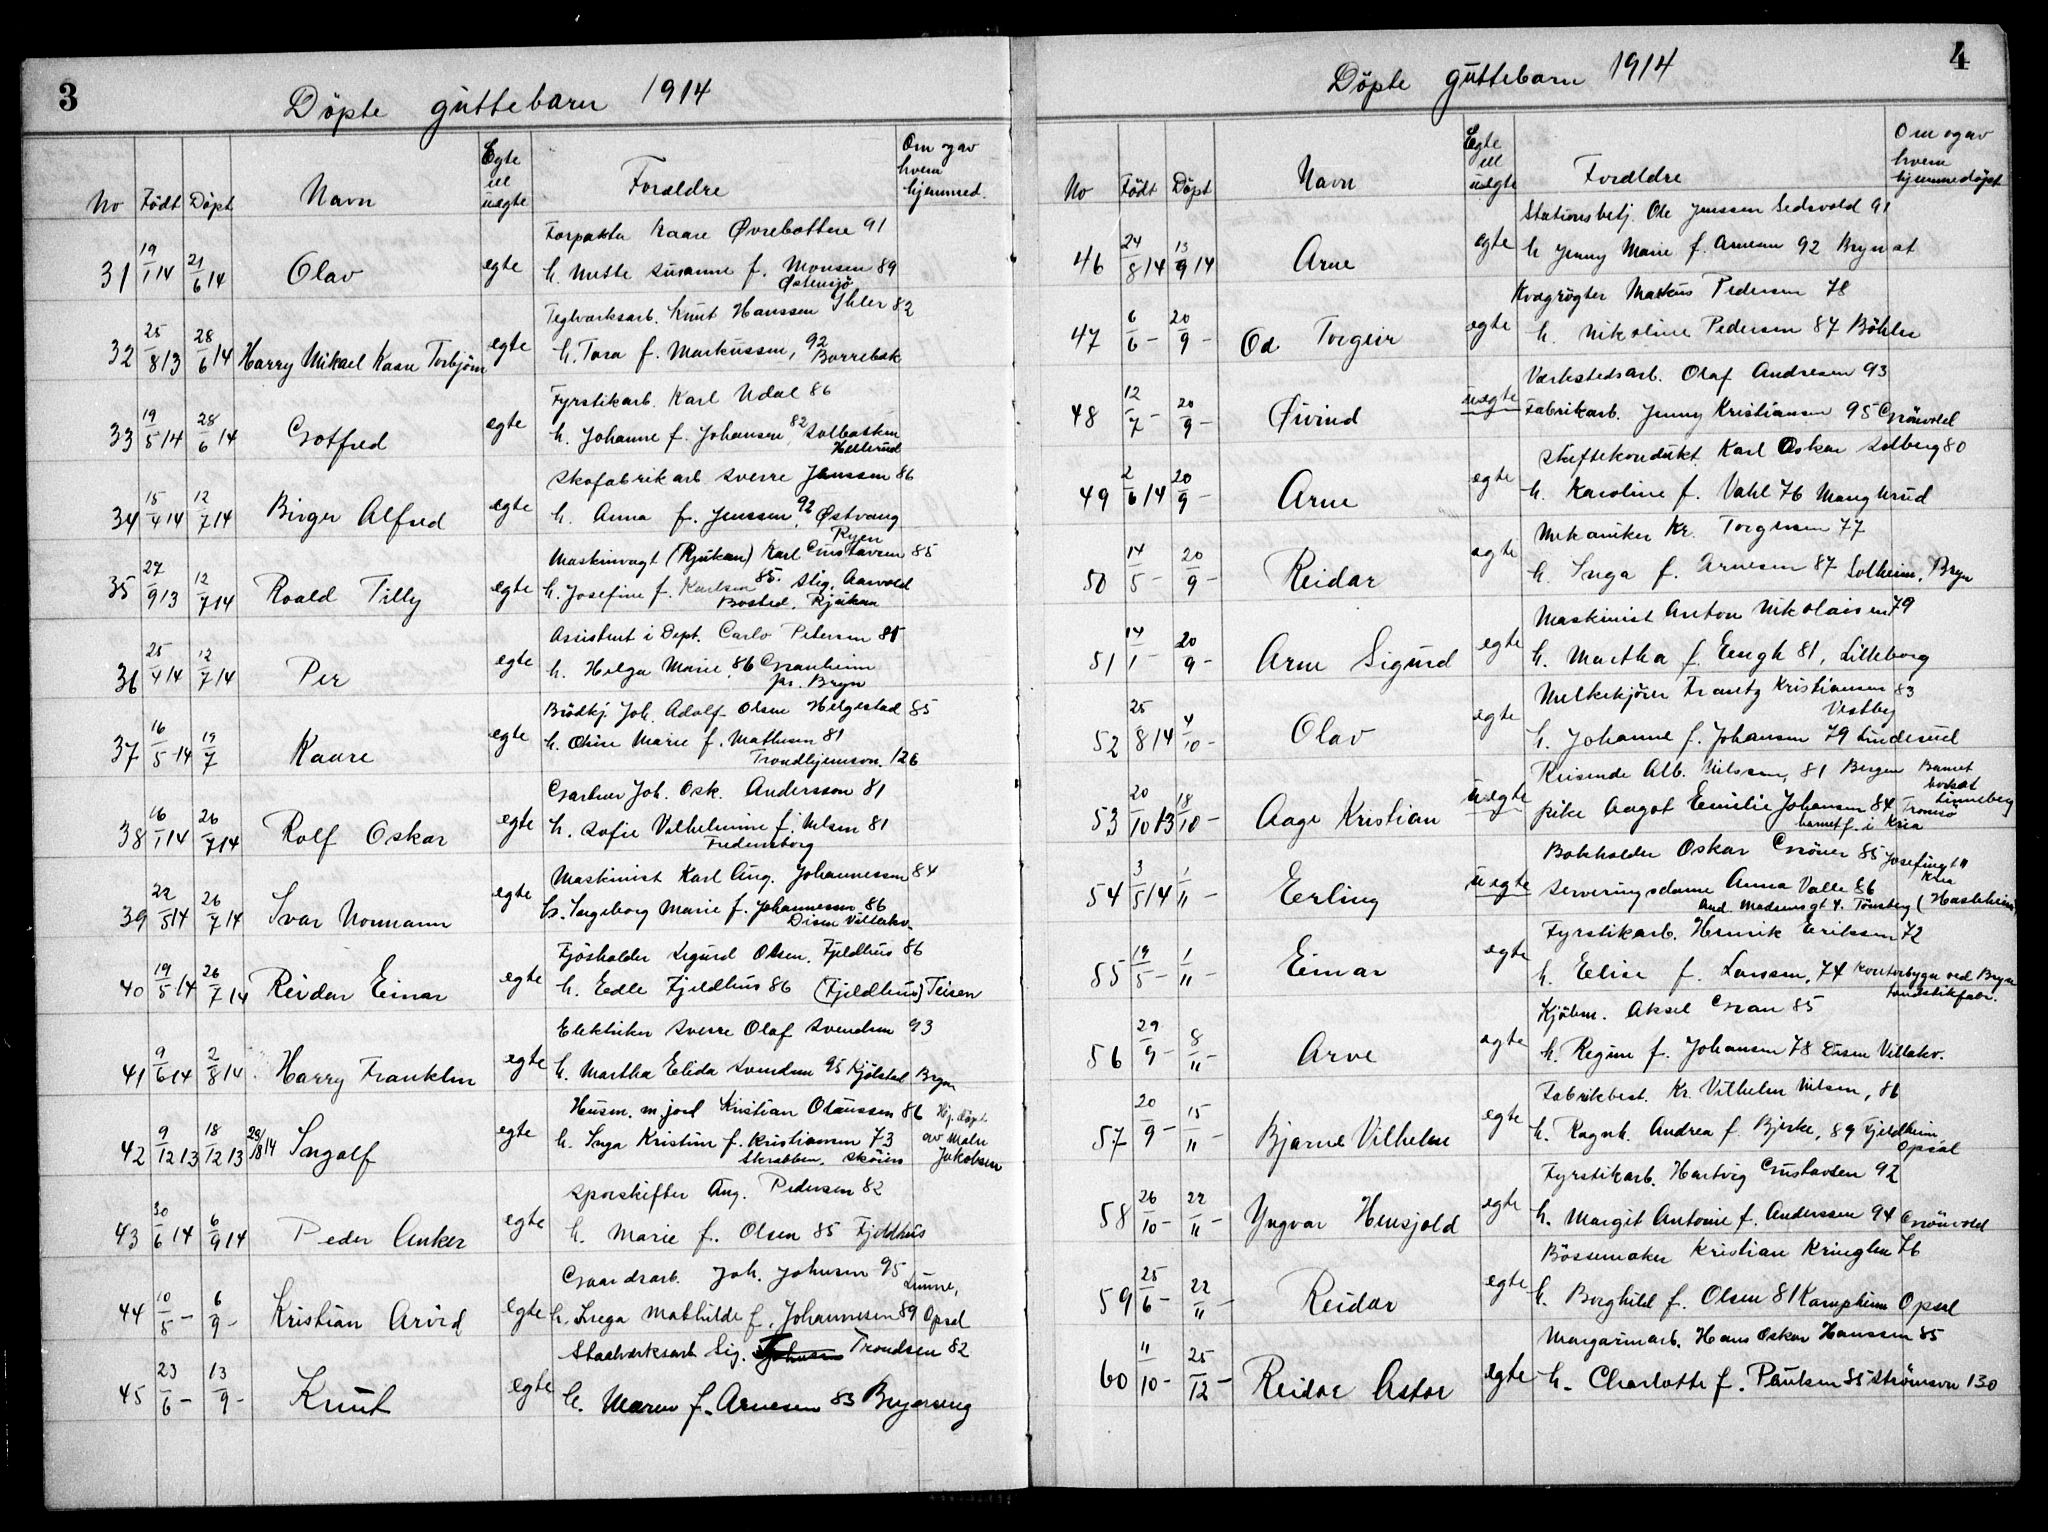 3
Döpte guttebarn 1914
No Födt Döpt Navn Egte ell uægte Forældre Om og av hvem hjemmed.
31 19/1 14 21/6 14 Olav egte Forpakter Kaare Øvrebotten 91
h. Mette Susanne f. Monsen 89
Østensjö
32 25/8 13 28/6 14 Harry Mikael Kaare Torbjörn egte Teglverksarb. Knut Hanssen Ihler 82
h. Tora f. Markussen, 92
Borrebæk
33 19/5 14 28/6 14 Gotfred egte Fyrstikarb. Karl Udal 86
h. Johanne f. Johansen 82 Solbakken
Hellerud
34 15/4 14 12/7 14 Birger Alfred egte Skofabrikarb Sverre Jenssen 86
h. Anna f. Jenssen, 92 Østvang
Ryen
35 27/9 13 12/7 14 Roald Tilly egte Maskinvagt (Rjukan) Karl Gustavsen 85
h. Josefine f. Karlsen 85. Stig. Aasvold
Bosted. Rjukan
36 25/4 14 12/7 14 Per egte Assistent i Dept. Carlo Petersen 85
h. Helga Marie, 86 Granheim
pr. Bryn
37 16/5 14 19/7 Kaare egte Brödkj. Joh. Adolf Olsen Helgestad 85
h. Oline Marie f. Mathesen 81
Trondhjemsvn. 126
38 16/1 14 26/7 14 Rolf Oskar egte Gartner Joh. Osk. Andersson 81
h. Sofie Vilhelmine f. Nilsen 81
Fredensborg
39 22/5 14 26/7 14 Ivar Normann egte Maskinist Karl Aug. Johannessen 84
h. Ingeborg Marie f. Johannessen 86
Disen Villakv.
40 19/5 14 26/7 14 Reidar Einar egte Fjösholder Sigurd Olsen. Fjeldhus 86
h. Edle Fjeldhus 86 (Fjeldhus) Teisen
41 9/6 14 2/8 14 Harry Franklin egte Elektriker Sverre Olaf Svendsen 93
h. Martha Elida Svendsen 95 Kjölstad Bryn
42 9/12 13 18/12 13 23/8 14 Ingolf egte Husm. m. jord Kristian Olaussen 86 Hj. döpt
h. Inga Kristine f. Kristiansen 73 av Maler
Skrabben. Sköien Jakobsen
43 30/6 14 6/9 14 Peder Anker egte Sporskifter Aug. Pedersen 82
h. Marie f. Olsen 85 Fjeldhus
44 10/5 - 6/9 - Kristian Arvid egte Gaardsarb. Joh. Johnsen 95 Lunne,
h. Inga Mathilde f. Johannessen 89 Opsal
45 23/6 - 13/9 - Knut egte Staalverksarb Sig. Trondsen 82
h. Maren f. Arnesen 83 Brynseng
4
Döpte guttebarn 1914
No Födt Döpt Navn Egte ell uægte Forældre Om og av hvem hjemmedöpt
46 24/8 14 13/9 14 Arne egte Stationsbetj. Ole Jenssen Sedsvold 91
h. Jenny Marie f. Arnesen 92 Bryn st
47 6/6 - 20/9 - Od Torgeir egte Kvægrögter Markus Pedersen 78
h. Nikoline Pedersen 87 Böhler
48 12/7 - 20/9 - Øivind uægte Verkstedsarb. Olaf Andresen 93
Fabrikarb. Jenny Kristiansen 95 Grönvold
49 2/6 14 20/9 - Arne egte Skiftekondukt. Karl Oskar Solberg 80
h. Karoline f. Vahl 76 Manglerud
50 14/5 - 20/9 - Reidar egte Mekaniker Kr. Torgersen 77
h. Inga f. Arnesen 87 Solheim, Bryn
51 14/1 - 20/9 - Arne Sigurd egte Maskinist Anton Nikolaisen 79
h. Martha f. Engh 81, Lilleborg
52 25/8 14 4/10 - Olav egte Melkekjörer Frantz Kristiansen 83
Vestby
h. Johanne f. Johansen 79 Linderud
53 20/10 13 18/10 - Aage Kristian uægte Reisende Alb. Nilssen, 81 Bergen Barnet
bortsat
Linneberg
pike Aagot Emilie Johansen 84 Tromsö
barnet f. i Kria
54 3/5 14 1/11 - Erling uægte Bokholder Oskar Gröner 85 Josefinegt 11
Kria
Serveringsdame Anna Valle 86 (Hasleheim)
And. Madsensgt 4. Tönsberg
55 19/5 - 1/11 - Einar egte Fyrstikarb. Henrik Eriksen 72
h. Elise f. Larssen, 74 Kontorbygn ved Bryn
tændstikfabr.
56 29/9 - 8/11 - Arve egte Kjöbm. Aksel Gran 85
h. Regine f. Johansen 78 Disen Villakv.
57 20/9 - 15/11 - Bjarne Vilhelm egte Fabrikbest. Kr. Vilhelm Nilsen, 86
h. Ragnh. Andrea f. Bjerke, 89 Fjeldheim,
Opsal
58 26/10 - 22/11 - Yngvar Hensjold egte Fyrstikarb. Hartvig Gustavsen 92
h. Margit Antonie f. Anderssen 94 Grönvold
59 25/6 - 22/11 - Reidar egte Bössemaker Kristian Kringlen 76
h. Borghild f. Olsen 81 Kampheim Opsal
60 11/10 - 25/12 - Reidar Astor egte Margarinarb. Hans Oskar Hanssen 85
h. Charlotte f. Paulsen 85 Strömsvn 130